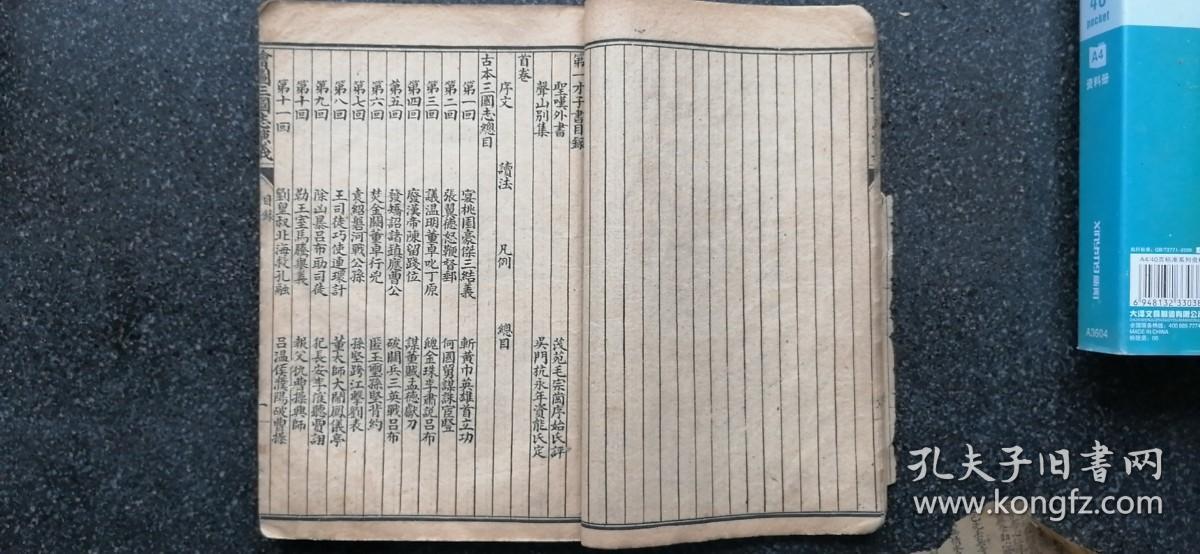 第一才子書目錄
聖嘆外書 茂苑毛宗崗序始氏評
聲山別集 吳門杭永年資能氏定
首卷
序文 讀法 凡例 總目
古本三國志總目
第一回 宴桃園豪傑三結義 斬黃巾英雄首立功
第二回 張翼德怒鞭督郵 何國舅謀誅宦豎
第三回 議溫明董卓叱丁原 餽金珠李肅說呂布
第四回 廢漢帝陳留踐位 謀董賊孟德獻刀
第五回 發矯詔諸鎮應曹公 破關兵三英戰呂布
第六回 焚金闕董卓行兇 匿玉璽孫堅背約
第七回 袁紹磐河戰公孫 孫堅跨江擊劉表
第八回 王司徒巧使連環計 董太師大鬧鳳儀亭
第九回 除凶暴呂布助司徒 犯長安李傕聽賈詡
第十回 勤王室馬騰舉義 報父仇曹操興師
第十一回 劉皇叔北海救孔融 呂溫侯濮陽破曹操
繪圖三國志演義 目錄 一
40
pocket
A4
资料册
A4/40页标准系列资料
6 948132 33038
大洋文具制造有限公
MADE IN CHINA
A3604
孔夫子旧书网
www.kongfz.com